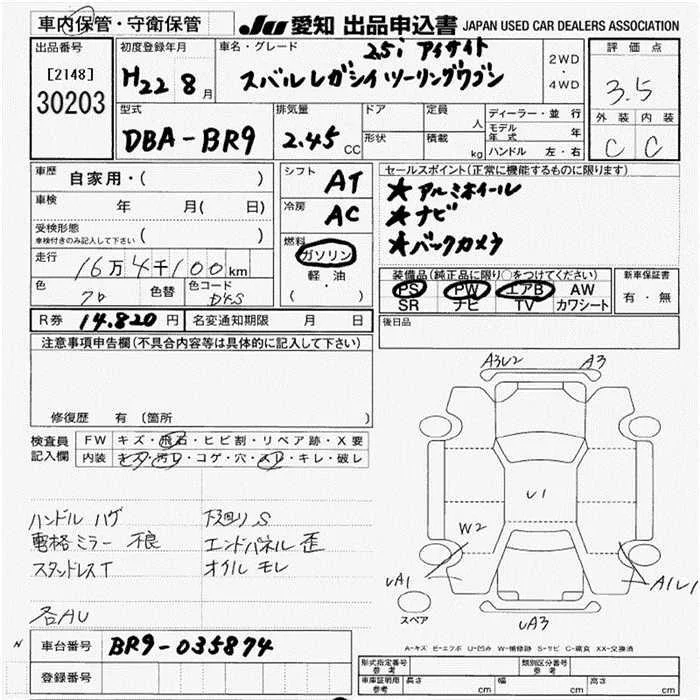 車内保管・守衛保管
JU 愛知 出品申込書 JAPAN USED CAR DEALERS ASSOCIATION
出品番号
[2148]
30203
初度登録年月
H22 8月
車名・グレード
2.5i アイサイト
スバルレガシィツーリングワゴン
2WD
・
4WD
評価点
3.5
外装 内装
C C
型式
DBA-BR9
排気量
2.45 CC
ドア
形状
定員
人
積載
kg
ディーラー・並行
モデル年式 年
ハンドル 左・右
車歴
自家用・( )
車検
年 月( 日)
受検形態
車検付きのみ記入して下さい ( )
走行
16万4千100km
色
色替
色コード
シフト
AT
冷房
AC
燃料
ガソリン
軽・油
( ・ )
セールスポイント(正常に機能するものに限ります)
★アルミホイール
★ナビ
★バックカメラ
装備品(純正品に限り○をつけてください)
PS PW エアB AW
SR ナビ TV カワシート
新車保証書
有・無
R券 14,820円
名変通知期限 月 日
後日品
注意事項申告欄(不具合内容等は具体的に記入して下さい)
修復歴 有〔箇所 〕
検査員記入欄
FW キズ・飛石・ヒビ割・リペア跡・X要
内装 キズ・汚レ・コゲ・穴・スレ・キレ・破レ
ハンドル ハゲ
電格ミラー 不良
スタッドレスT
各AU
下廻りS
エンドパネル 歪
オイル モレ
A3U2 A3
U1
W2
UA1
A1U1
UA3
スペア
A-キズ E-エクボ U-凹み W-補修跡 S-サビ C-腐食 XX-交換済
N
車台番号 BR9-035874
登録番号
型式指定番号 参考
類別区分番号 参考
車庫証明用 参考 長さ cm 幅 cm 高さ cm